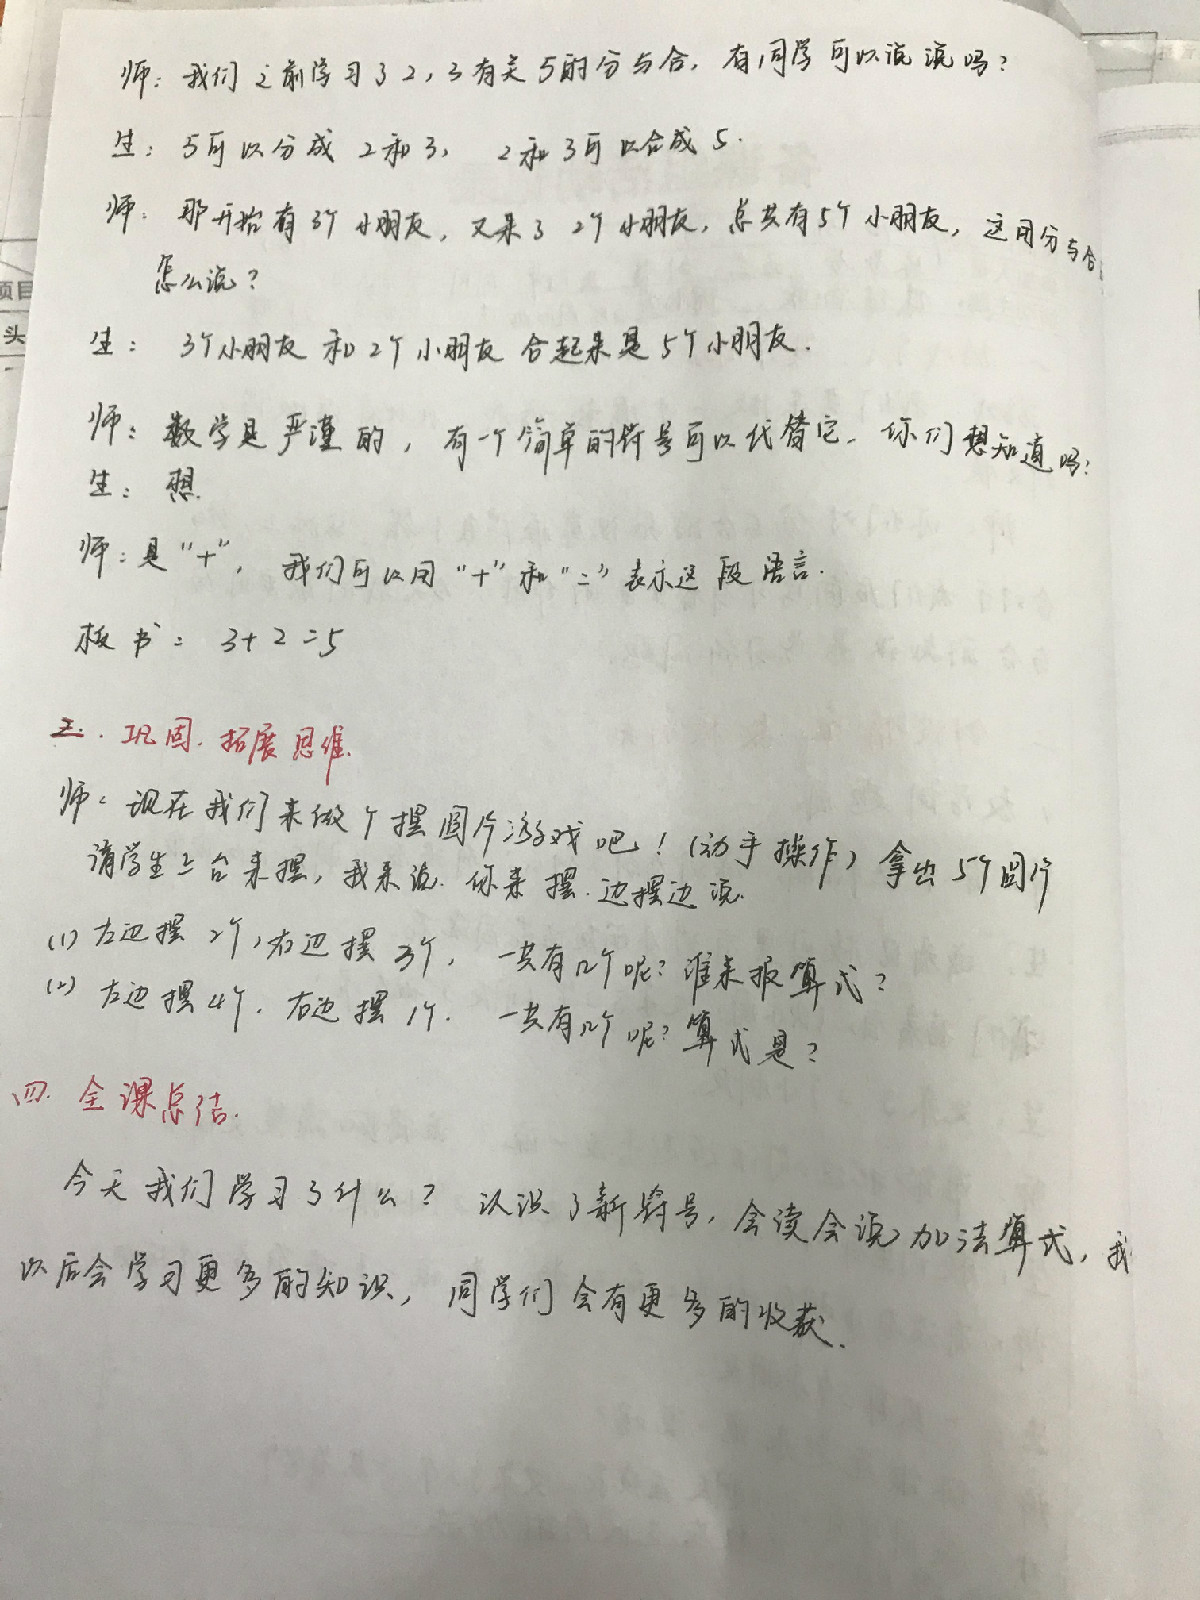 师：我们之前学习了2，3有关5的分与合，有同学可以说说吗？
生：5可以分成2和3， 2和3可以合成5.
师：那开始有3个小朋友，又来了2个小朋友，总共有5个小朋友，这用分与合
怎么说？
生：3个小朋友和2个小朋友合起来是5个小朋友.
师：数学是严谨的，有一个简单的符号可以代替它. 你们想知道吗？
生：想.
师：是"+"，我们可以用"+"和"="表示这段语言.
板书：3+2=5
三. 巩固.拓展思维.
师：现在我们来做个摆圆片游戏吧！(动手操作) 拿出5个圆片
请学生上台来摆，我来说. 你来摆.边摆边说.
(1) 左边摆2个，右边摆3个，一共有几个呢？谁来报算式？
(2) 左边摆4个. 右边摆1个. 一共有几个呢？算式是？
四. 全课总结.
今天我们学习了什么？认识了新符号，会读会说加法算式，我
以后会学习更多的知识，同学们会有更多的收获.
项目
头